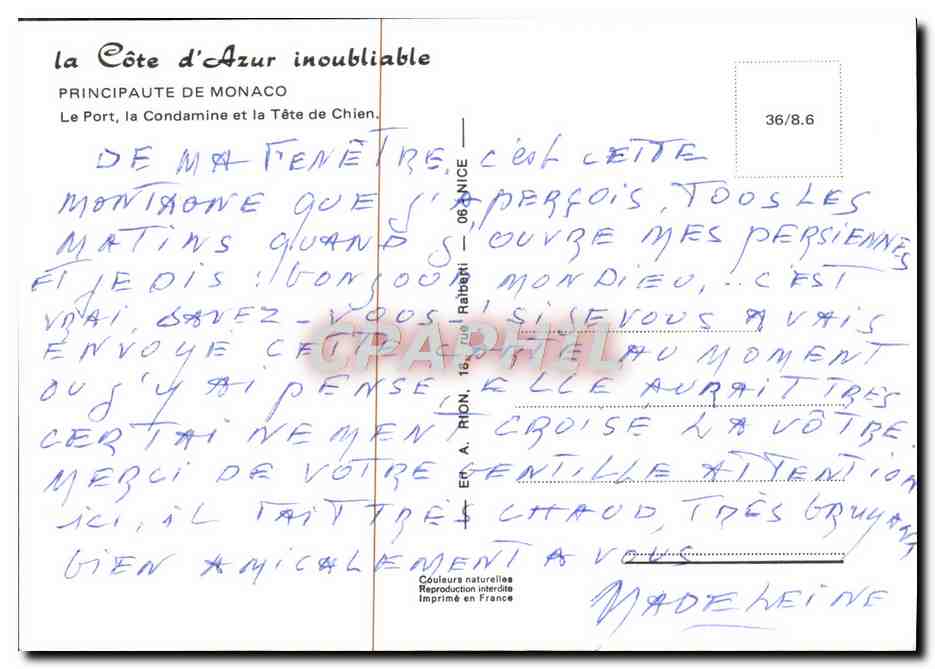 la Côte d'Azur inoubliable
PRINCIPAUTE DE MONACO
Le Port, la Condamine et la Tête de Chien.
36/8.6
DE MA FENÊTRE, C'EST CETTE
MONTAGNE QUE J'APERÇOIS, TOUS LES
MATINS QUAND J'OUVRE MES PERSIENNES
ET JE DIS : BONJOUR MON DIEU, .. C'EST
VRAI, SAVEZ-VOUS ! SI JE VOUS AVAIS
ENVOYÉ CETTE CARTE, AU MOMENT
OU J'Y AI PENSE, ELLE AURAIT TRES
CERTAINEMENT CROISE LA VÔTRE.
MERCI DE VOTRE GENTILLE ATTENTION
ICI, IL FAIT TRÈS CHAUD, TRÈS BRUYANT
BIEN AMICALEMENT A VOUS
MADELEINE
Ed. A. RION, 16, rue Raiberti — 06 NICE
Couleurs naturelles
Reproduction interdite
Imprimé en France
CPARHIL